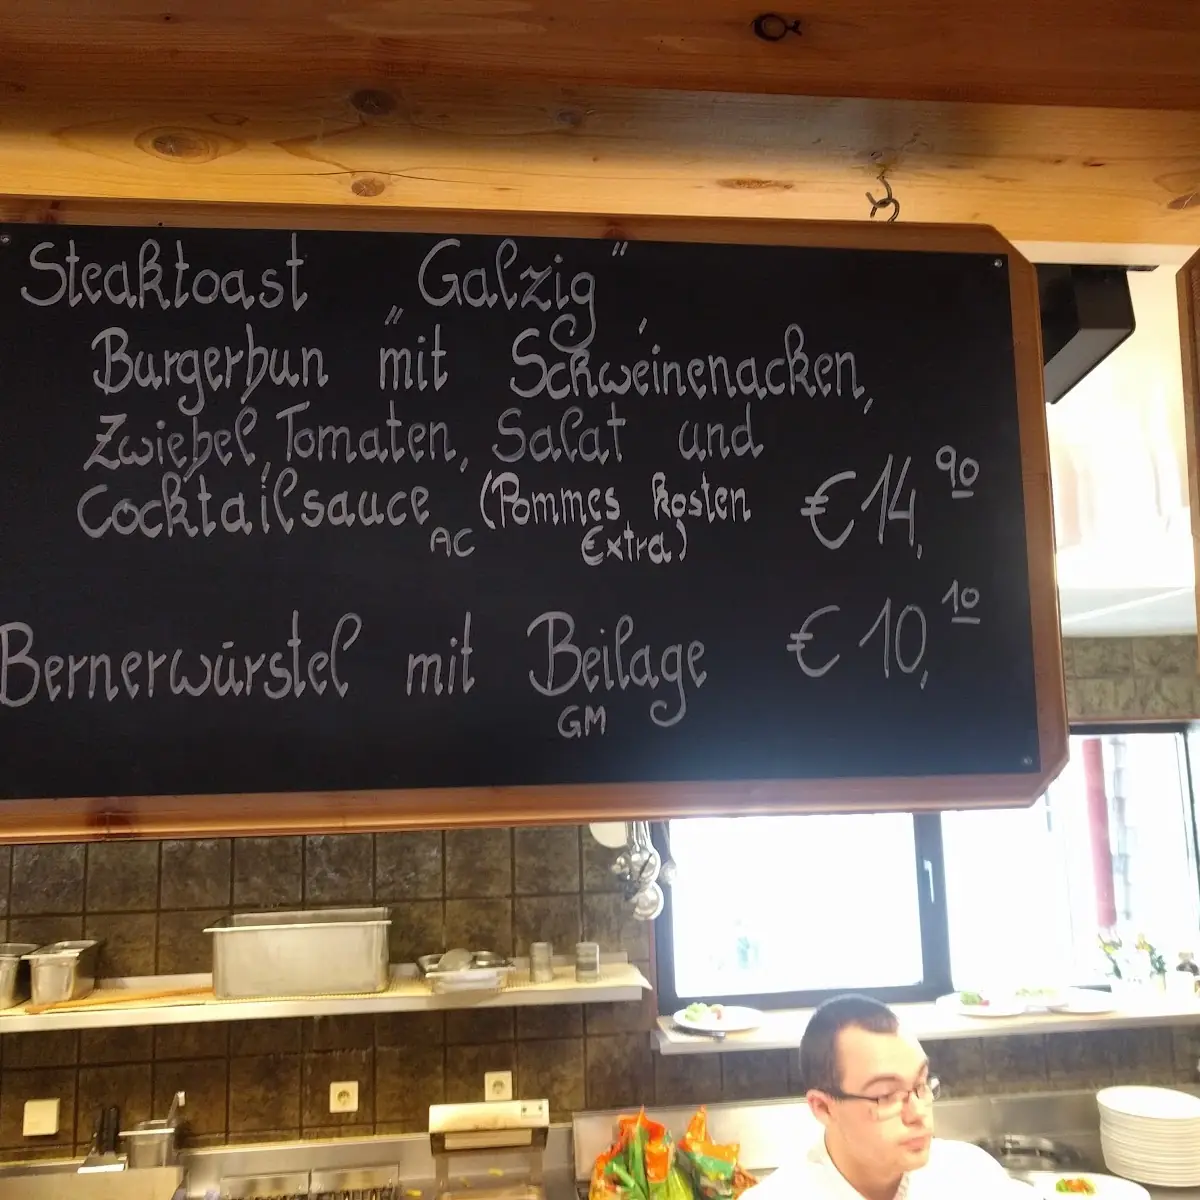 Steaktoast „Galzig"
Burgerbun mit Schweinenacken,
Zwiebel, Tomaten, Salat und
Cocktailsauce (Pommes kosten € 14,90
AC Extra)
Bernerwürstel mit Beilage € 10,10
GM